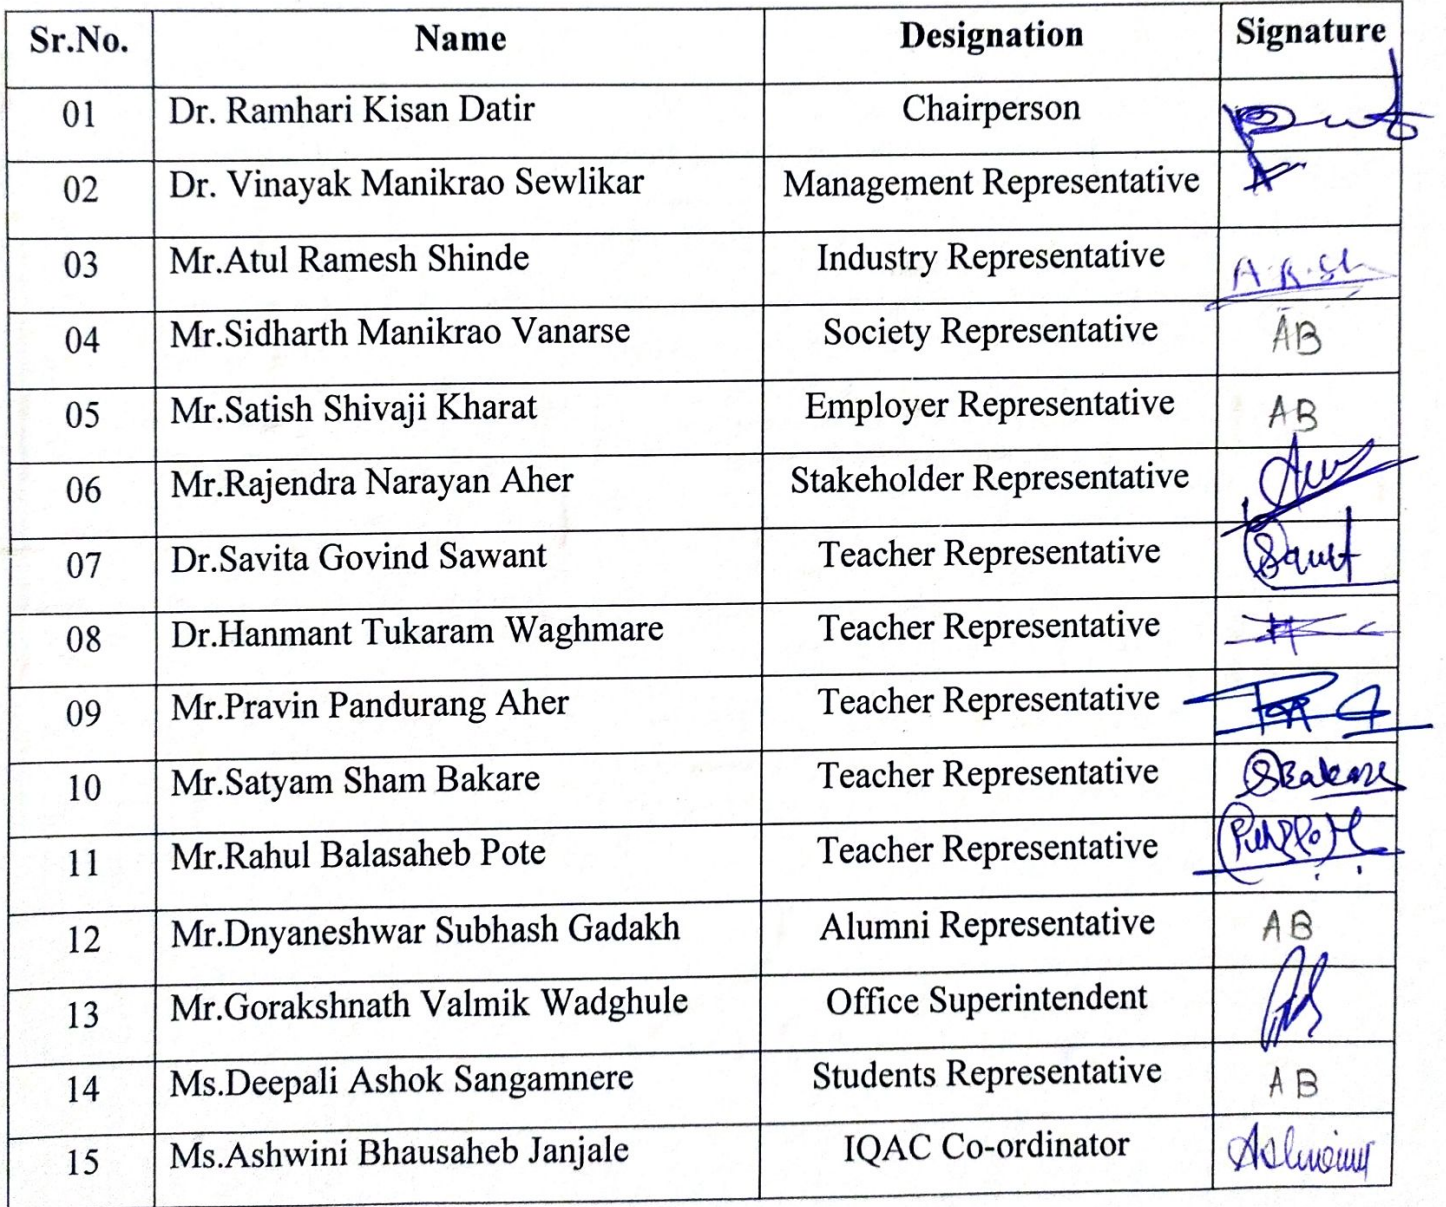 Sr.No. Name Designation Signature
01 Dr. Ramhari Kisan Datir Chairperson
02 Dr. Vinayak Manikrao Sewlikar Management Representative
03 Mr.Atul Ramesh Shinde Industry Representative A.R.Sh
04 Mr.Sidharth Manikrao Vanarse Society Representative AB
05 Mr.Satish Shivaji Kharat Employer Representative AB
06 Mr.Rajendra Narayan Aher Stakeholder Representative
07 Dr.Savita Govind Sawant Teacher Representative
08 Dr.Hanmant Tukaram Waghmare Teacher Representative
09 Mr.Pravin Pandurang Aher Teacher Representative
10 Mr.Satyam Sham Bakare Teacher Representative SBakare
11 Mr.Rahul Balasaheb Pote Teacher Representative
12 Mr.Dnyaneshwar Subhash Gadakh Alumni Representative AB
13 Mr.Gorakshnath Valmik Wadghule Office Superintendent
14 Ms.Deepali Ashok Sangamnere Students Representative AB
15 Ms.Ashwini Bhausaheb Janjale IQAC Co-ordinator